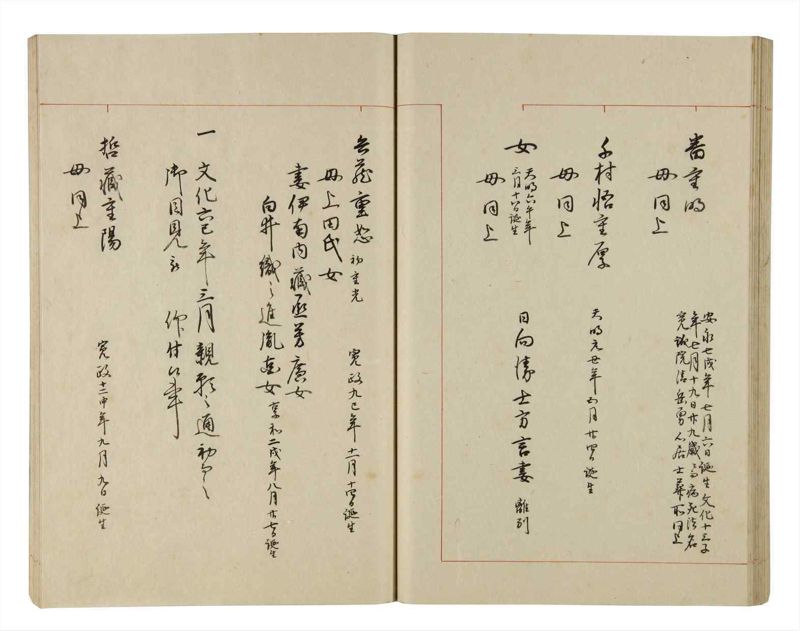 番重明
母同上
安永七戌年七月六日誕生文化十三子
年七月十九日廿九歳ニ而病死法名
寛誠院清岳勇心居士葬所同上
千村悟重厚
母同上
天明元丑年五月廿四日誕生
女
天明六午年
三月十八日誕生
母同上
日向勝士方言妻 離別
兵蔵重恕 初重光
寛政九巳年十一月十四日誕生
母上田氏女
妻伊南内蔵丞芳廣女
白井織之進胤直女 享和二戌年八月廿七日誕生
一 文化六巳年三月親願之通初而之
御目見被 仰付候事
哲蔵重陽
寛政十二申年九月九日誕生
母同上